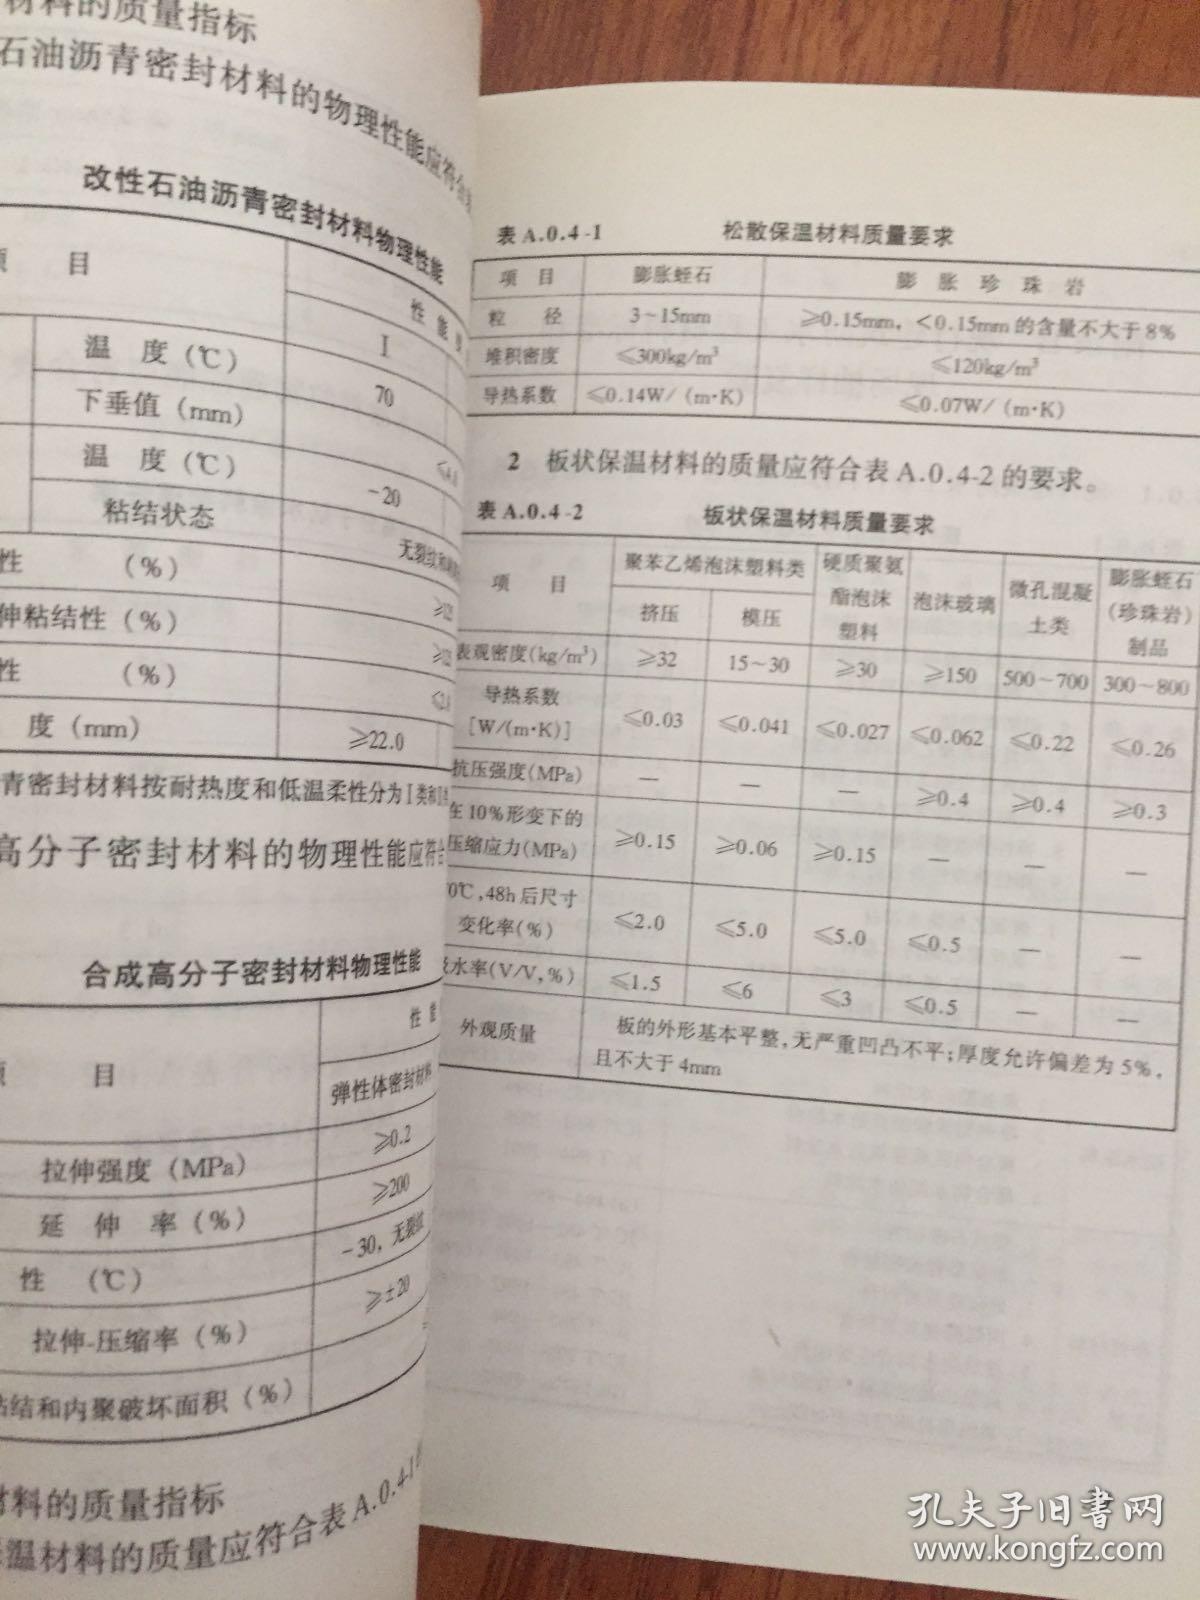 材料的质量指标
石油沥青密封材料的物理性能应符合
改性石油沥青密封材料物理性能
目
性 能
温 度(℃)
I
下垂值(mm)
70
温 度(℃)
-20
粘结状态
无裂纹和
性 (%)
伸粘结性(%)
性 (%)
度(mm)
≥22.0
青密封材料按耐热度和低温柔性分为I类和
高分子密封材料的物理性能应符合
合成高分子密封材料物理性能
目
性 能
弹性体密封材料
拉伸强度(MPa)
≥0.2
延 伸 率(%)
≥200
性 (℃)
-30,无裂纹
拉伸-压缩率(%)
≥±20
粘结和内聚破坏面积(%)
材料的质量指标
温材料的质量应符合表A.0.4-1
表A.0.4-1 松散保温材料质量要求
项 目 膨胀蛭石 膨 胀 珍 珠 岩
粒 径 3~15mm ≥0.15mm,<0.15mm的含量不大于8%
堆积密度 ≤300kg/m³ ≤120kg/m³
导热系数 ≤0.14W/(m·K) ≤0.07W/(m·K)
2 板状保温材料的质量应符合表A.0.4-2的要求。
表A.0.4-2 板状保温材料质量要求
项 目 聚苯乙烯泡沫塑料类 硬质聚氨酯泡沫塑料 泡沫玻璃 微孔混凝土类 膨胀蛭石(珍珠岩)制品
挤压 模压
表观密度(kg/m³) ≥32 15~30 ≥30 ≥150 500~700 300~800
导热系数
[W/(m·K)] ≤0.03 ≤0.041 ≤0.027 ≤0.062 ≤0.22 ≤0.26
抗压强度(MPa) — — — ≥0.4 ≥0.4 ≥0.3
在10%形变下的
压缩应力(MPa) ≥0.15 ≥0.06 ≥0.15 — — —
70℃,48h后尺寸
变化率(%) ≤2.0 ≤5.0 ≤5.0 ≤0.5 — —
吸水率(V/V,%) ≤1.5 ≤6 ≤3 ≤0.5 — —
外观质量 板的外形基本平整,无严重凹凸不平;厚度允许偏差为5%,
且不大于4mm
孔夫子旧书网
www.kongfz.com